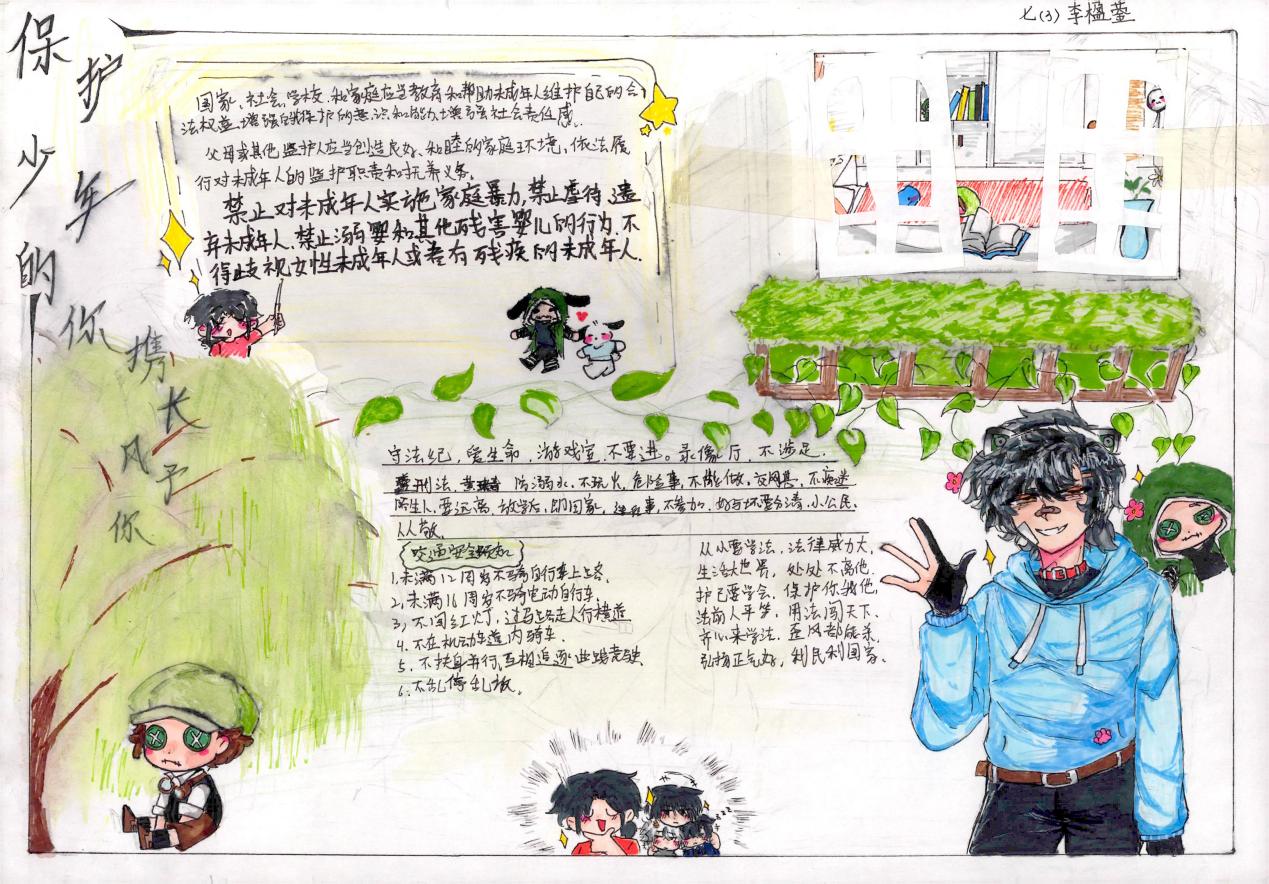 七(3) 李楹蓥
保护少年的你
携长风予你
国家、社会、学校、和家庭应当教育和帮助未成年人维护自己的合
法权益,增强自我保护的意识和能力,增强社会责任感.
父母或其他监护人应当创造良好、和睦的家庭环境,依法履
行对未成年人的监护职责和抚养义务。
禁止对未成年人实施家庭暴力,禁止虐待、遗
弃未成年人.禁止溺婴和其他残害婴儿的行为,不
得歧视女性未成年人或者有残疾的未成年人.
守法纪,爱生命,游戏室,不要进。录像厅,不涉足.
刑法, 防溺水,不玩火,危险事,不能做,交网甚,不痴迷
陌生人,要远离,放学后,即回家, 事,不参加,好与坏要分清,小公民,
人人敬.
交通安全须知
1.未满12周岁不骑自行车上路.
2,未满16周岁不骑电动自行车.
3,不闯红灯,过马路走人行横道
4.不在机动车道内骑车.
5.不扶身并行,互相追逐,曲蹐竞驶.
6.不乱停乱放.
从小要学法,法律威力大,
生活大世界,处处不离他.
护己要学会,保护你我他,
法前人平等,用法闯天下.
齐心来学法,歪风都能杀,
弘扬正气好,利民利国家.
zzz